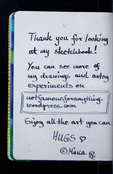 Thank you for looking
at my sketchbook!
You can see more of
my drawings and artsy
experiments on
notfamousforanything.
wordpress.com
Enjoy all the art you can
HUGS
©